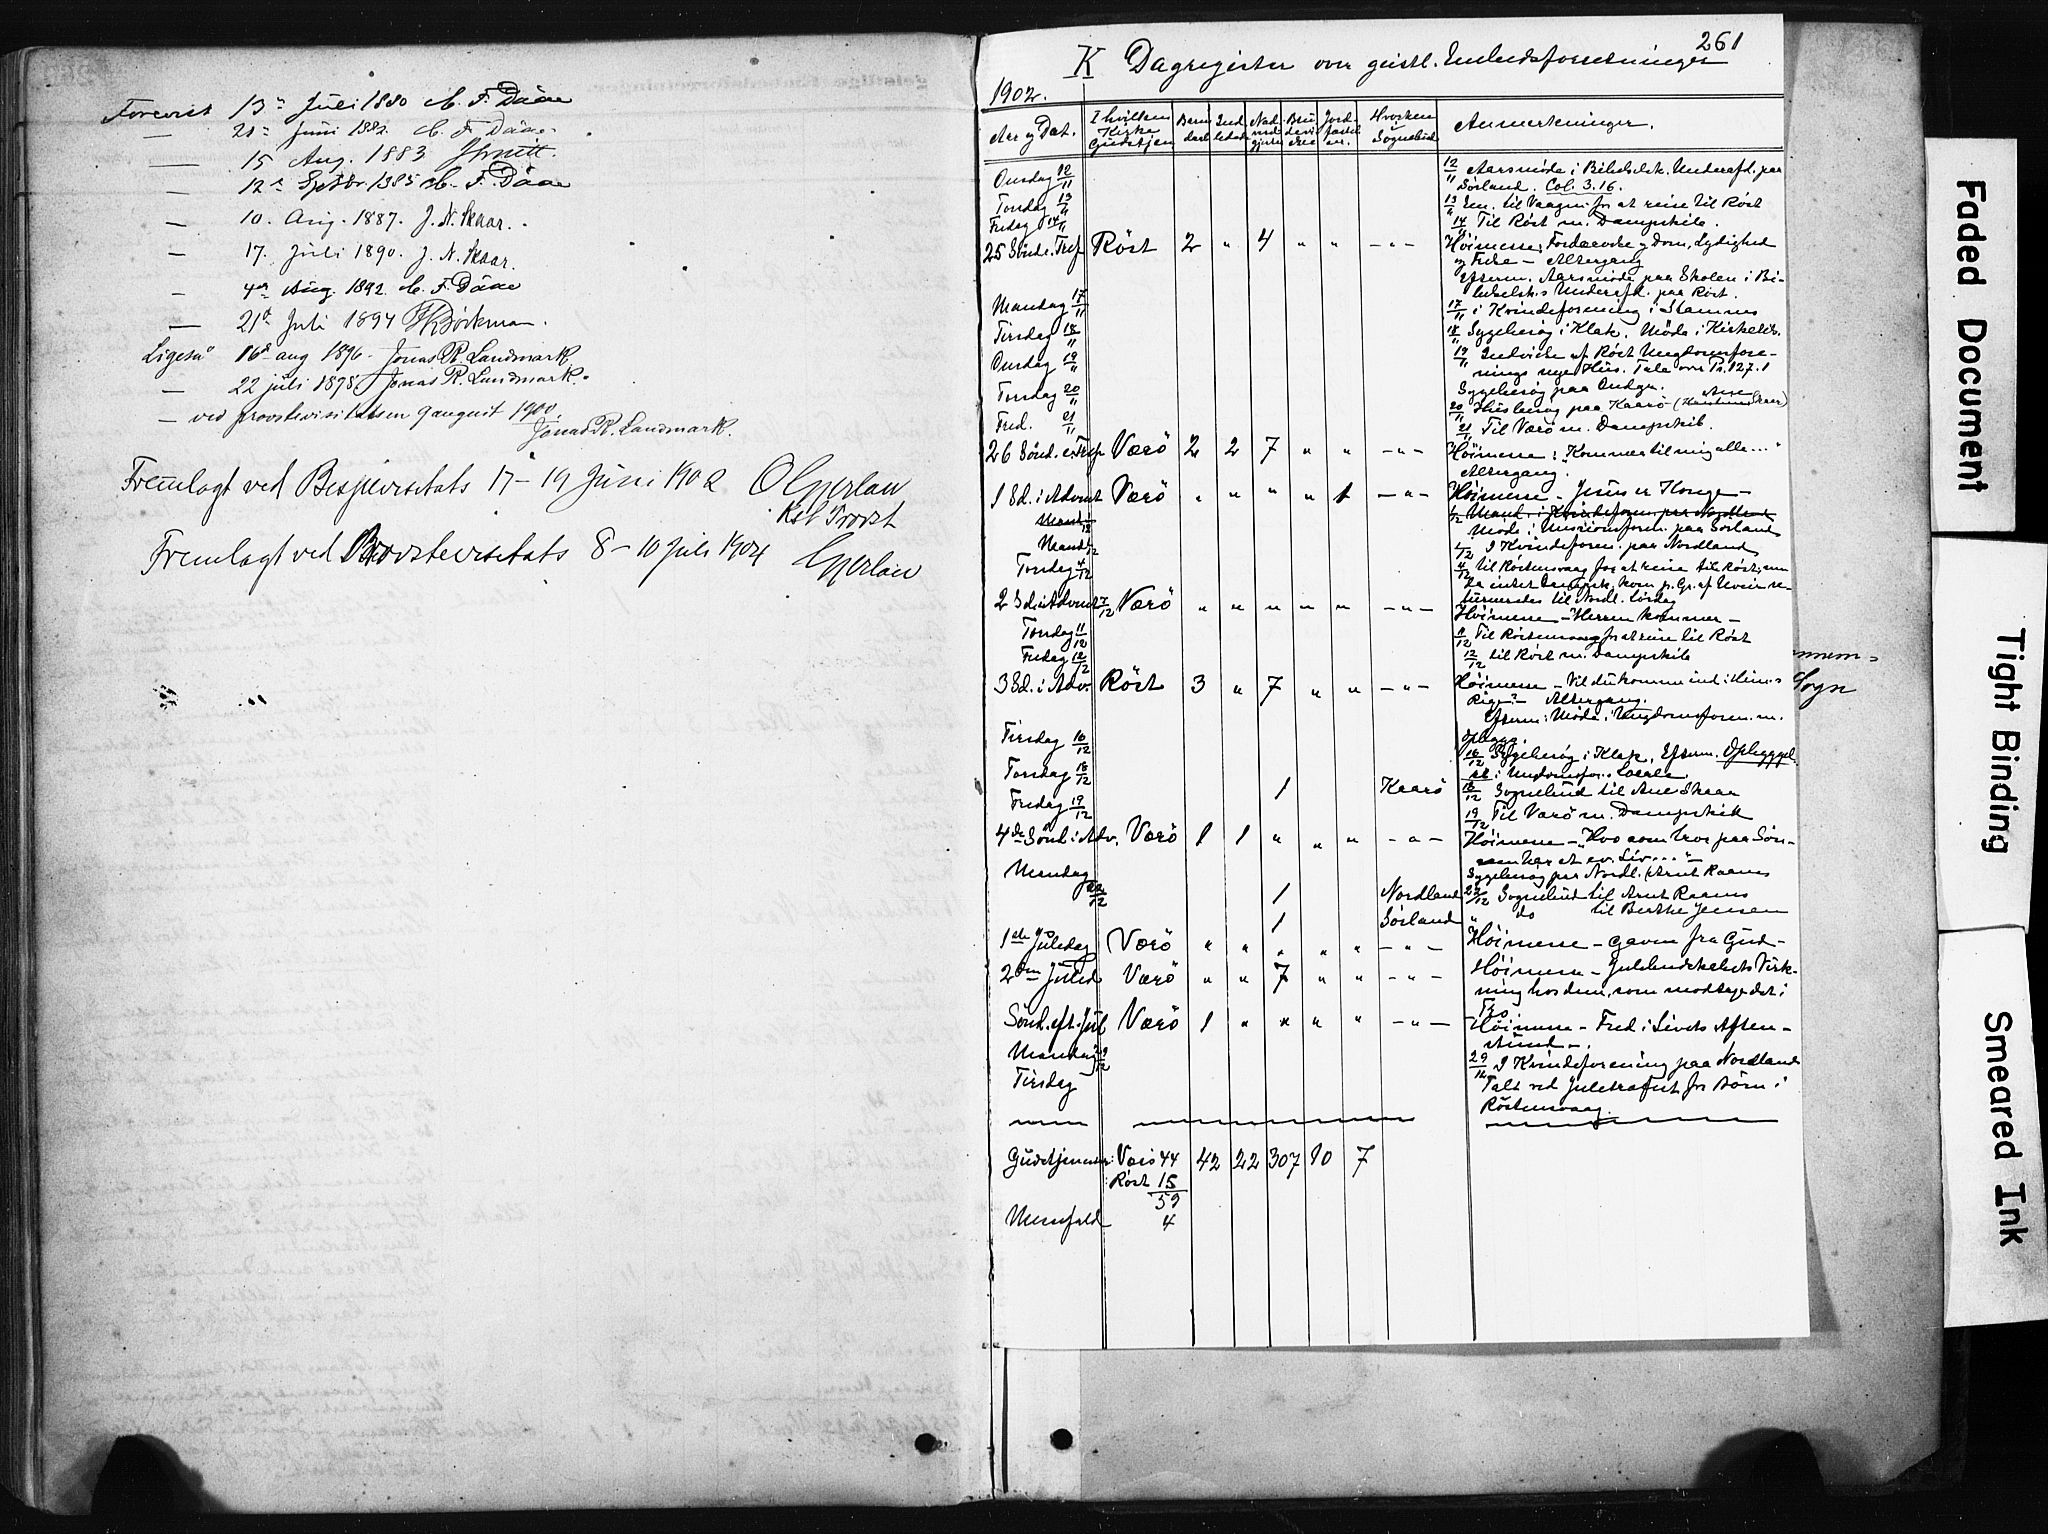 Forevist 13de Juli 1880 C. F. Daae
— 21de Juni 1882. C. F. Daae.
— 15 Aug. 1883
— 12te Septbr 1885 C. F. Daae
— 10. Aug. 1887. J. N. Skaar.
— 17. Juli 1890. J. N. Skaar.
— 4de Aug. 1892. C. F. Daae
— 21de Juli 1894 Bøckman.
Ligesaa 16de aug 1896. Jonas R. Landmark
— 22 juli 1898. Jonas R. Landmark.
— ved provstevisitatsen 9 august 1900.
Jonas R. Landmark.
Fremlagt ved Bispevisitats 17–19 Juni 1902 O Gjerløw
Kst Provst
Fremlagt ved Provstevisitats 8–10 Juli 1904 Gjerløw
261
K Dagregister over geistl. Embedsforretninger
1902.
Aar og Dat. I hvilken Kirke Gudstjen Barn daab Ind ledede Nad verd gjester Bru devi else Jord fæstel ser. Hvorhen Sognebud Anmerkninger.
Onsdag 12/11 12/11 Aarsmøde i Bibelselsk. Underafd. paa
Sørland. Col. 3.16.
Torsdag 13/11 13/11 Em. til Vaagen for at reise til Røst
Fredag 14/11 14/11 Til Røst m. Dampskib.
25 Sönd. e. Tref Röst 2 " 4 " " – " – Høimesse: Fordærvelse og Dom, Lydighed
og Frelse – Altergang
Efterm. Aarsmøde paa Skolen i Bi-
belselsk.s Underafd. paa Røst.
Mandag 17/11 17/11 i Kvindeforening i Stamnes
Tirsdag 18/11 18/11 Sygebesøg i Klak. Møde i Kirkeldk.
Onsdag 19/11 19/11 Indvielse af Røst Ungdomsfore-
nings nye Hus. Tale over Ps. 127.1
Sygebesøg paa
Torsdag 20/11 20/11 Husbesøg paa Kaarö (Ane Skaar)
Fred. 21/11 21/11 Til Værö m. Dampskib.
26 Sönd. e. Tref Værö 2 2 7 " " – " – Höimesse: "Kommer til mig alle..."
Altergang.
1 Sd. i Advent Værö " " " " 1 – " – Höimesse – Jesus er Konge –
1/12 Mand. i Kvindeforen. paa Nordland
Møde i Missionsforen. paa Sørland
Mand 1/12 1/12 I Kvindeforen. paa Nordland
Torsdag 4/12 4/12 til Röstensvaag for at reise til Röst, men
da intet Dampsk. kom p. Gr. af Uveir re-
turneredes til Nordl. Lørdag
2 Sd. i Advent 7/12 Værö " " " " " – " – Höimesse – Herren kommer –
Torsdag 11/12 11/12 Til Röstensvaag for at reise til Röst
Fredag 12/12 12/12 til Röst m. Dampskib
3 Sd. i Adv. Röst 3 " 7 " " – " – Höimesse – Vil du komme ind i Himls
Rige? – Altergang.
Efterm: Møde i Ungdomsforen. m.
Opbygg.
Tirsdag 16/12 16/12 Sygebesög i Klak, Efterm. Opbyggel-
se i Ungdomsfor.s Locale
Torsdag 18/12 1 Kaarö 18/12 Sognebud til Ane Skaar
Fredag 19/12 19/12 Til Værö m. Dampskib
4de Sönd. i Adv. Værö 1 1 " " " – " – Höimesse – "Hvo som tror paa Søn-
nen har et ev. Liv..." –
Mandag Sygebesög paa Nordl. (Arnt Raanes
22/12 1 Nordland 22/12 Sognebud til Arnt Raanes
1 Sörland " do til Berthe Jensen
1ste Juledag Værö " " " " " – " – Höimesse – Gaven fra Gud –
2den Juled Værö " " 7 " " – " – Höimesse – Julebudskabets Virk-
ning hos dem, som modtage det i
Tro.
Sönd. eft. Jul Værö 1 " " " " – " – Höimesse – Fred i Livets Aften-
stund –.
Mandag 29/12 29/12 I Kvindeforening paa Nordland
Tirsdag Talt ved Juletræfest for Börn i
Röstensvaag.
Gudstjenester: Værö 44 42 22 307 10 7
Röst 15
59
Messefald 4
Sogn
Faded Document
Tight Binding
Smeared Ink